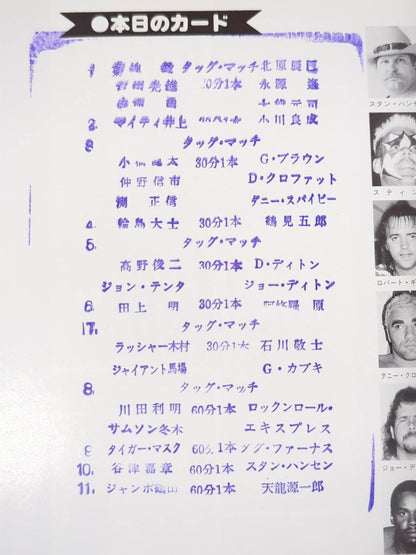 ●本日のカード
1. 菊地 毅 タッグ・マッチ 北原辰巳
百田光雄 30分1本 永源 遙
2. マイティ井上 30分1本 小川良成
3. タッグ・マッチ
小橋健太 30分1本 G・ブラウン
仲野信市 D・クロファット
渕 正信 ダニー・スパイビー
4. 輪島大士 30分1本 鶴見五郎
5. タッグ・マッチ
高野俊二 30分1本 D・ディトン
ジョン・テンタ ジョー・ディトン
6. 田上 明 30分1本 阿修羅 原
7. タッグ・マッチ
ラッシャー木村 30分1本 石川敬士
ジャイアント馬場 G・カブキ
8. タッグ・マッチ
川田利明 60分1本 ロックンロール・
サムソン冬木 エキスプレス
9 タイガー・マスク 60分1本 ダグ・ファーナス
10. 谷津嘉章 60分1本 スタン・ハンセン
11. ジャンボ鶴田 60分1本 天龍源一郎
スタン・ハンセ
スティ
ロバート・ギ
ダニー・クロ
ジョー・デ